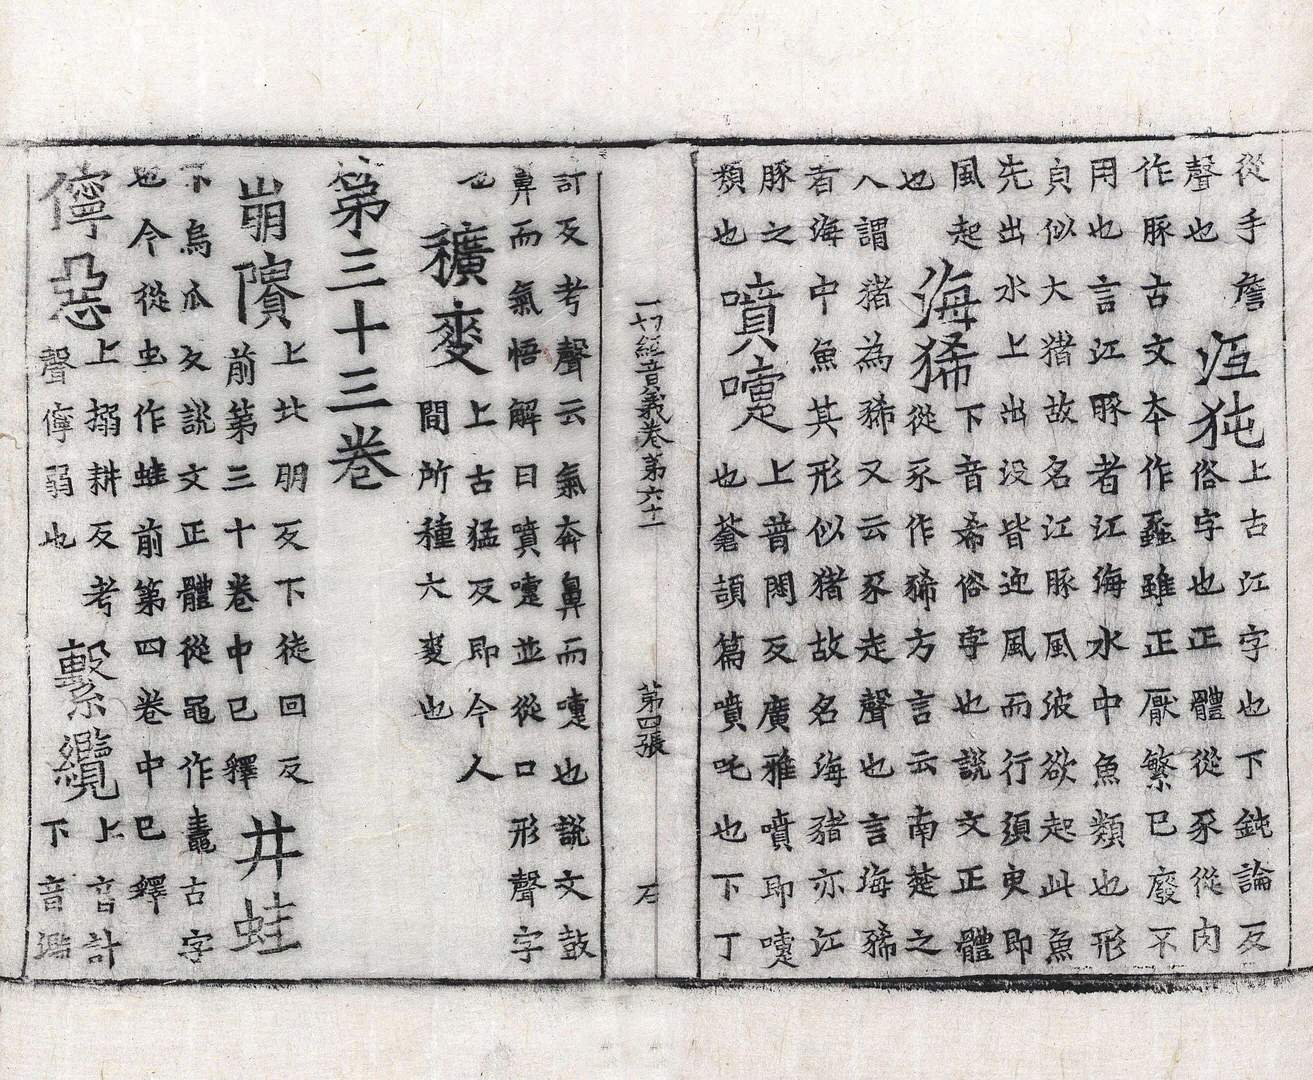 從手詹
聲也
㹠
上古江字也下鈍論反
俗字也正體從豕從肉
作豚古文本作雖正厭繁已廢不
用也言江豚者江海水中魚類也形
貟似大猪故名江豚風波欲起此魚
先出水上出没皆迎風而行須臾即
風起
也
海狶
下音希俗字也説文正體
從豕作豨方言云南楚之
人謂猪為豨又云豕走聲也言海豨
者海中魚其形似猪故名海豬亦江
豚之
類也
噴嚏
上普悶反廣雅噴即嚏
也蒼頡篇噴吒也下丁
一切經音義卷第六十一
第四張
石
計反考聲云氣奔鼻而嚏也説文鼓
鼻而氣悟解曰噴嚏並從口形聲字
也
穬麥
上古猛反即今人
間所種大麥也
第三十三卷
崩隤
上北朋反下徒回反
前第三十卷中已釋
井蛙
下烏瓜反説文正體從黽作鼃古字
也今從虫作蛙前第四卷中已釋
儜惡
上搦耕反考
聲儜弱也
繫纜
上音計
下音濫